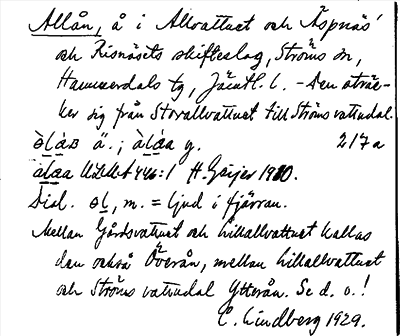 Allån, å i Allvattnet och Äspnäs'
och Risnäsets skifteslag, Ströms sn,
Hammerdals tg, Jämtl. l. - Den sträc-
ker sig från Storallvattnet till Ströms vattudal.
ä.; y. 217a
ULMA 446:1 H. Geijer 1910.
Dial. m. = ljud i fjärran.
Mellan Gårdsvattnet och Lillallvattnet kallas
den också Överån, mellan Lillallvattnet
och Ströms vattudal Ytterån. Se d. o.!
C. Lindberg 1929.